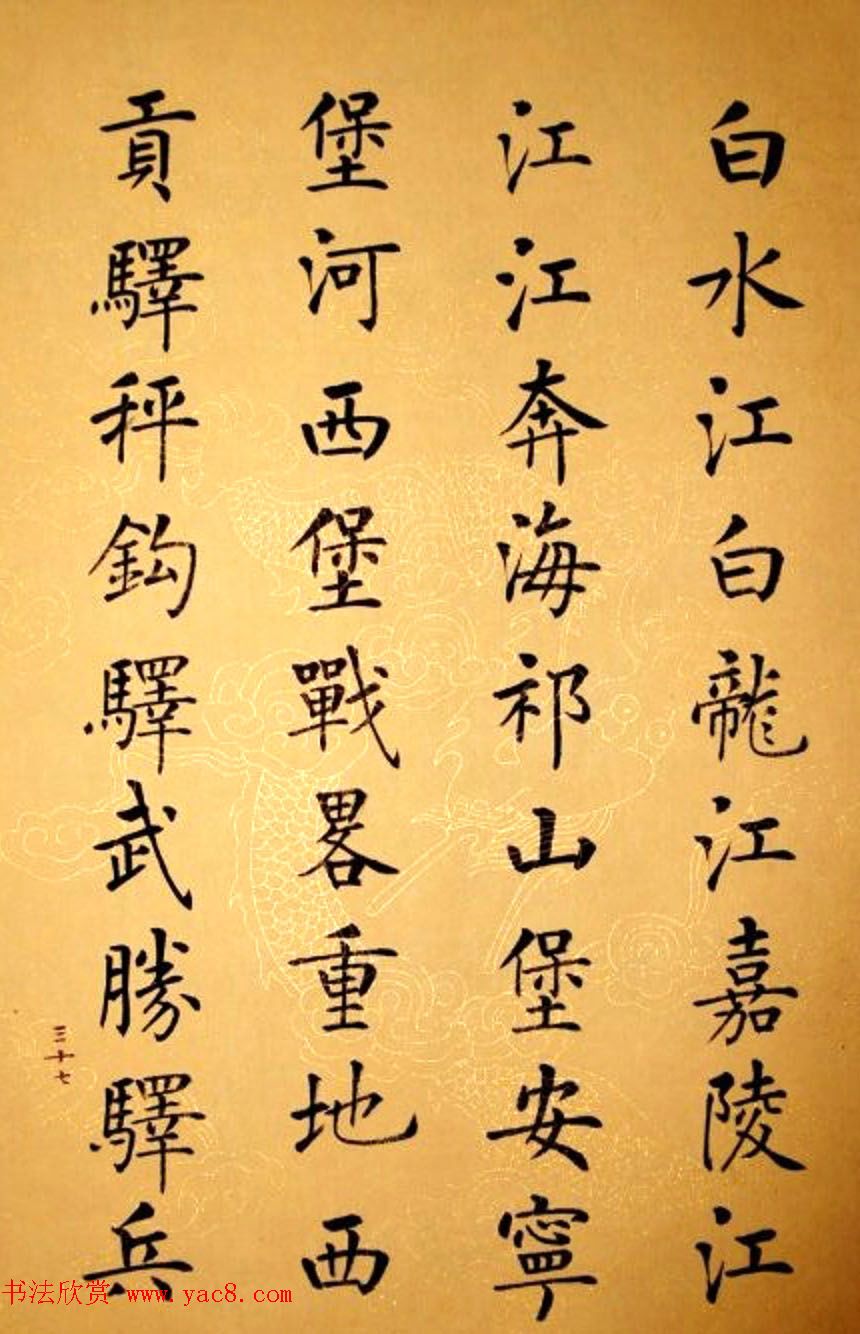 白水江白龍江嘉陵江
江江奔海祁山堡安寧
堡河西堡戰畧重地西
貢驛秤鈎驛武勝驛兵
三十七
书法欣赏 www.yac8.com